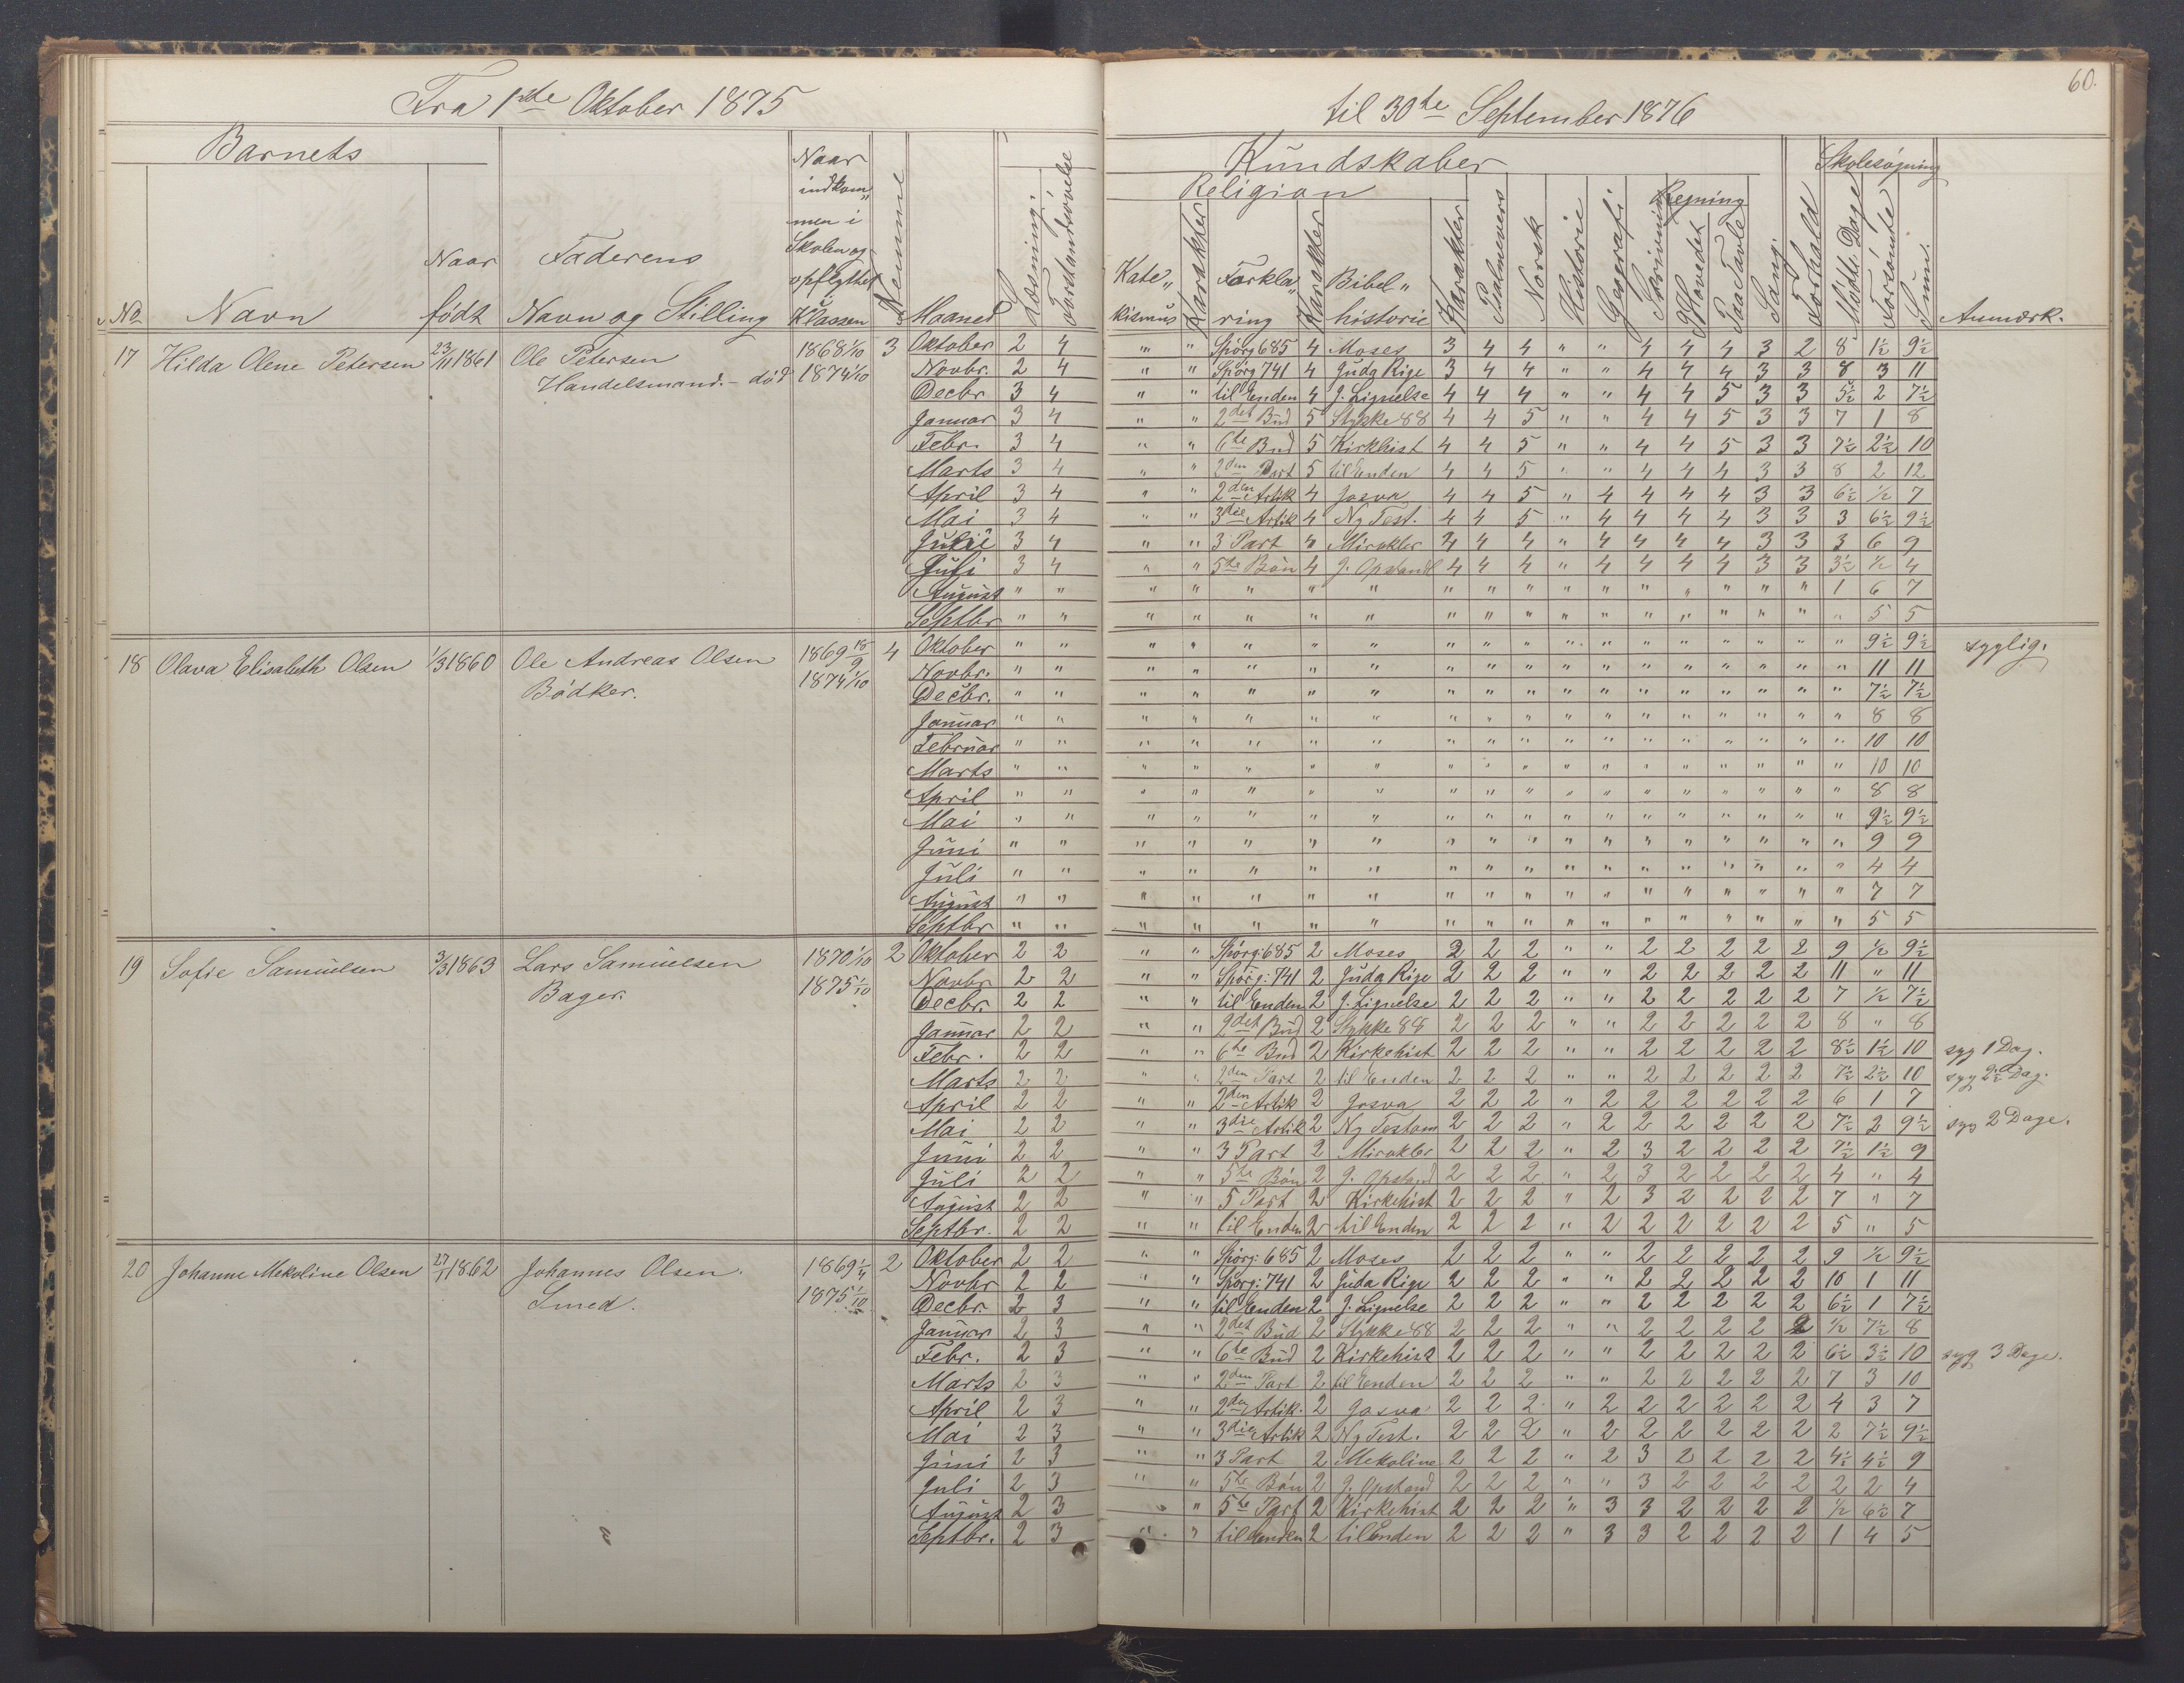 60.
Fra 1ste Oktober 1875 til 30te September 1876
Barnets
No
Navn
Naar født
Faderens Navn og Stilling
Naar indkom„ men i Skolen og opflyttet i Klassen
Nemme
Maaned
Læsning.
Forstandsøvelse
Kundskaber
Religion
Kate„ kismus
Karakter
Forkla„ ring
Karakter
Bibel„ historie
Karakter
Psalmevers
Norsk
Historie
Geografi
Skrivning
Regning
Hovedet
Paa Tavle
Sang.
Forhold
Skolesøgning
Mødte Dage
Forsømte
Sum.
Anmærk.
17 Hilda Olene Petersen 23/11 1861 Ole Petersen 1868 1/10 3 Oktober 2 4 " " Spörg 685 4 Moses 3 4 4 " " 4 4 4 3 2 8 1½ 9½
Handelsmand. - död 1874 1/10 Novbr. 2 4 " " Spörg 741 4 Juda Rige 3 4 4 " " 4 4 4 3 3 8 3 11
Decbr 3 4 " " til Enden 4 J. Lignelse 4 4 4 " " 4 4 5 3 3 5½ 2 7½
Januar 3 4 " " 2det Bud 5 Stykke 88 4 4 5 " " 4 4 5 3 3 7 1 8
Febr. 3 4 " " 6te Bud 5 Kirkhist 4 4 5 " " 4 4 5 3 3 7½ 2½ 10
Marts 3 4 " " 2den Part 5 til Enden 4 4 5 " " 4 4 4 3 3 8 2 12
April 3 4 " " 2den Artik 4 Josva 4 4 5 " 4 4 4 4 3 3 6½ ½ 7
Mai 3 4 " " 3die Artik 4 Ny Test. 4 4 5 " 4 4 4 4 3 3 3 6½ 9½
3 4 " " 3 Part 4 Mirakler 4 4 4 " 4 4 4 4 3 3 3 6 9
Juli 3 4 " " 5te Bön 4 J. Opstand 4 4 4 " 4 4 4 4 3 3 3½ ½ 4
August " " " " " " " " " " " " " " " " " " 1 6 7
Septbr " " " " " " " " " " " " " " " " " " " 5 5
18 Olava Elisabeth Olsen 1/3 1860 Ole Andreas Olsen 1869 15/9 4 Oktober " " " " " " " " " " " " " " " " " " " 9½ 9½ syglig.
Bödker. 1874 1/10 Novbr. " " " " " " " " " " " " " " " " " " " 11 11
Decbr. " " " " " " " " " " " " " " " " " " " 7½ 7½
Januar " " " " " " " " " " " " " " " " " " " 8 8
Februar " " " " " " " " " " " " " " " " " " " 10 10
Marts " " " " " " " " " " " " " " " " " " " 10 10
April " " " " " " " " " " " " " " " " " " " 8 8
Mai " " " " " " " " " " " " " " " " " " " 9½ 9½
Juni " " " " " " " " " " " " " " " " " " " 9 9
Juli " " " " " " " " " " " " " " " " " " " 4 4
August " " " " " " " " " " " " " " " " " " " 7 7
Septbr " " " " " " " " " " " " " " " " " " " 5 5
19 Sofie Samuelsen 3/3 1863 Lars Samuelsen 1870 1/10 2 Oktober 2 2 " " Spörg: 685 2 Moses 2 2 2 " " 2 2 2 2 2 9 ½ 9½
Bager. 1875 1/10 Novbr 2 2 " " Spörg: 741 2 Juda Rige 2 2 2 " " 2 2 2 2 2 11 " 11
Decbr. 2 2 " " til Enden 2 J. Lignelse 2 2 2 " " 2 2 2 2 2 7 ½ 7½
Januar 2 2 " " 2det Bud 2 Stykke 88 2 2 2 " " 2 2 2 2 2 8 " 8
Febr. 2 2 " " 6te Bud 2 Kirkehist 2 2 2 " " 2 2 2 2 2 8½ 1½ 10 syg 1 Dag.
Marts 2 2 " " 2den Part 2 til Enden 2 2 2 " " 2 2 2 2 2 7½ 2½ 10 syg 2½ Dag.
April 2 2 " " 2den Artik 2 Josva 2 2 2 " 2 2 2 2 2 2 6 1 7
Mai 2 2 " " 3die Artik 2 Ny Testam 2 2 2 " 2 2 2 2 2 2 7½ 2 9½ syg 2 Dage.
Juni 2 2 " " 3 Part 2 Mirakler 2 2 2 " 2 3 2 2 2 2 7½ 1½ 9
Juli 2 2 " " 5te Bön 2 J. Opstand 2 2 2 " 2 3 2 2 2 2 4 " 4
August 2 2 " " 5 Part 2 Kirkehist 2 2 2 " 2 3 2 2 2 2 7 " 7
Septbr. 2 2 " " til Enden 2 til Enden 2 2 2 " 2 2 2 2 2 2 5 " 5
20 Johanne Mekoline Olsen 27/1 1862 Johannes Olsen. 1869 1/4 2 Oktober 2 2 " " Spörg: 685 2 Moses 2 2 2 " " 2 2 2 2 2 9 ½ 9½
Smed. 1875 1/10 Novbr 2 2 " " Spörg: 741 2 Juda Rige 2 2 2 " " 2 2 2 2 2 10 1 11
Decbr. 2 3 " " til Enden 2 J. Lignelse 2 2 2 " " 2 2 2 2 2 6½ 1 7½
Januar 2 3 " " 2det Bud 2 Stykke 88 2 2 2 " " 2 2 2 2 2 ½ 7½ 8
Febr. 2 3 " " 6te Bud 2 Kirkehist 2 2 2 " " 2 2 2 2 2 6½ 3½ 10 syg 3 Dage.
Marts 2 3 " " 2den Part 2 til Enden 2 2 2 " " 2 2 2 2 2 7 3 10
April 2 3 " " 2den Artik. 2 Josva 2 2 2 " 2 2 2 2 2 2 4 3 7
Mai 2 3 " " 3die Artik 2 Ny Test. 2 2 2 " 2 2 2 2 2 2 2 7½ 9½
Juni 2 3 " " 3 Part 2 Mekoline 2 2 2 " 2 3 2 2 2 2 4½ 4½ 9
Juli 2 3 " " 5te Bön 2 J. Opstand 2 2 2 " " 3 2 2 2 2 2 2 4
August 2 3 " " 5te Part 2 Kirkehist 2 2 2 " 3 3 2 2 2 2 ½ 6½ 7
Septbr. 2 3 " " til Enden 2 til Enden 2 2 2 " 3 3 2 2 2 2 1 4 5